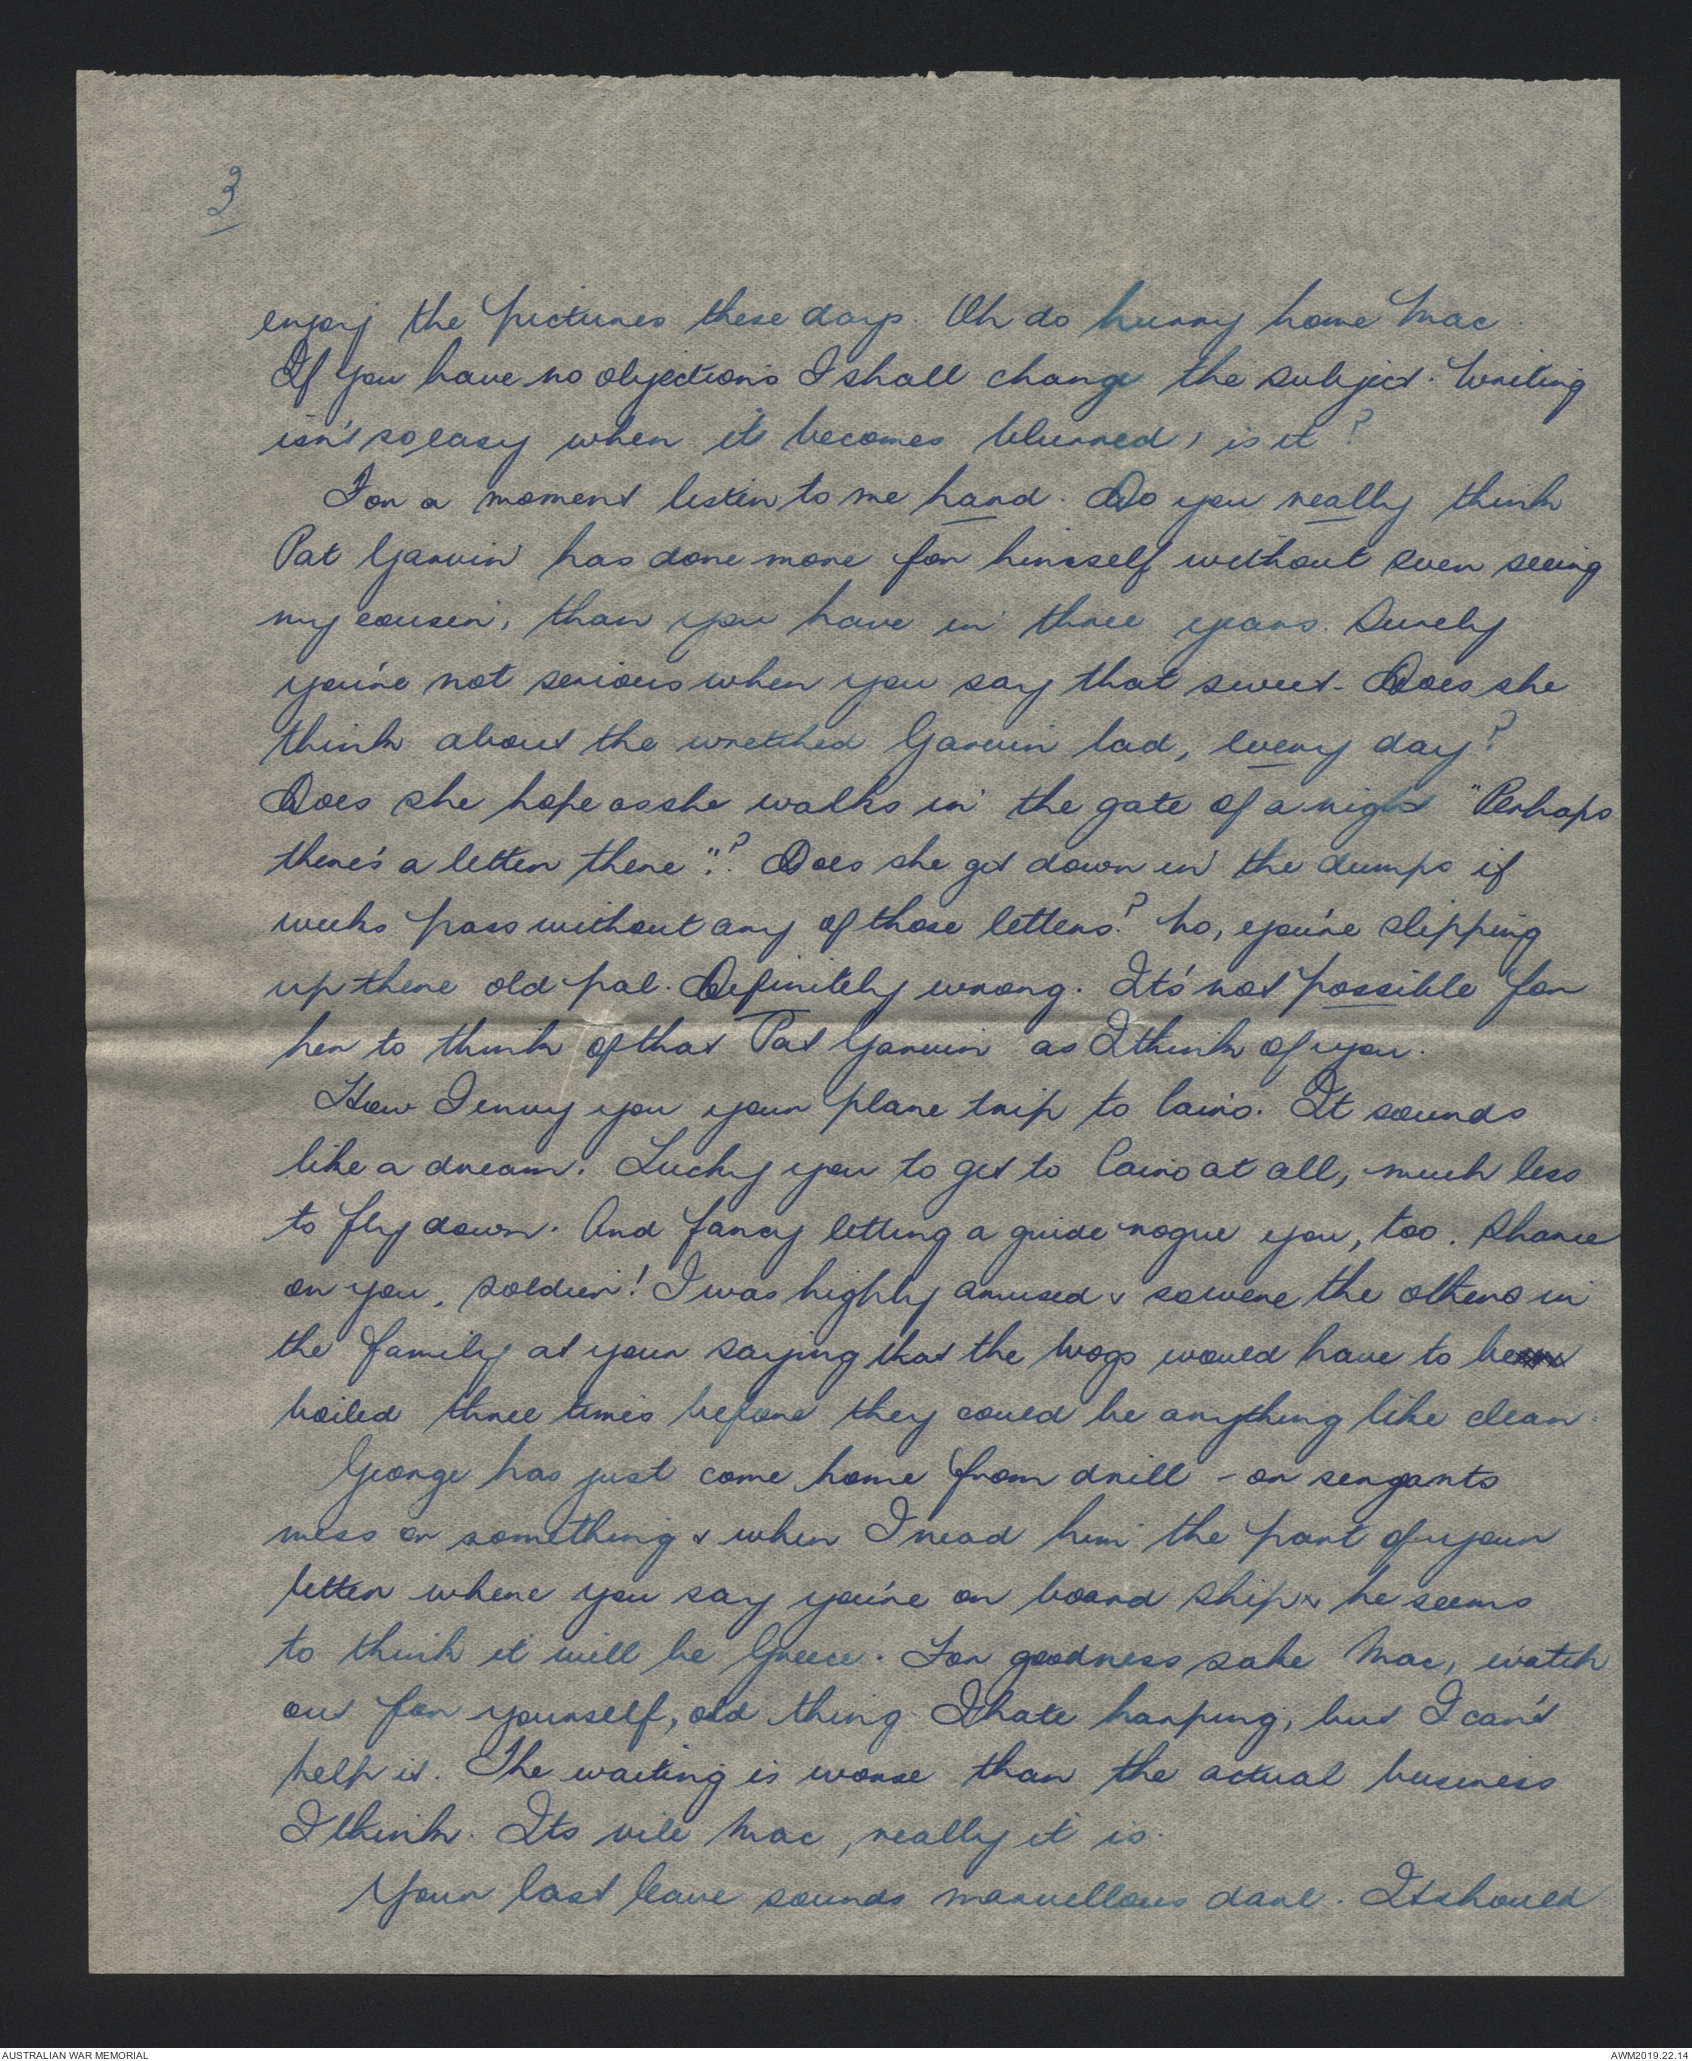 3
enjoy the pictures these days. Oh do hurry home Mac.
If you have no objections I shall change the subject. Writing
isn't so easy when it becomes blurred, is it?
For a moment listen to me hard. Do you really think
Pat Garvin has done more for himself without even seeing
my cousin, than you have in three years. Surely
you're not serious when you say that sweet. Does she
think about the wretched Garvin lad, every day?
Does she hope as she walks in the gate of a night "Perhaps
there's a letter there"? Does she get down in the dumps if
weeks pass without any of those letters? No, you're slipping
up there old pal. Definitely wrong. It's not possible for
her to think of that Pat Garvin as I think of you.
How I envy you your plane trip to Cairo. It sounds
like a dream. Lucky you to get to Cairo at all, much less
to fly down. And fancy letting a guide rogue you, too. Shame
on you, soldier! I was highly amused & so were the others in
the family at your saying that the Wogs would have to be
boiled three times before they could be anything like clean.
George has just come home from drill - or sergants
mess or something & when I read him the part of your
letter where you say you're on board ship & he seems
to think it will be Greece. For goodness sake Mac, watch
out for yourself, old thing. I hate harping, but I can't
help it. The waiting is worse than the actual business
I think. Its vile Mac, really it is.
Your last leave sounds marvellous darl. It should
AUSTRALIAN WAR MEMORIAL
AWM2019.22.14